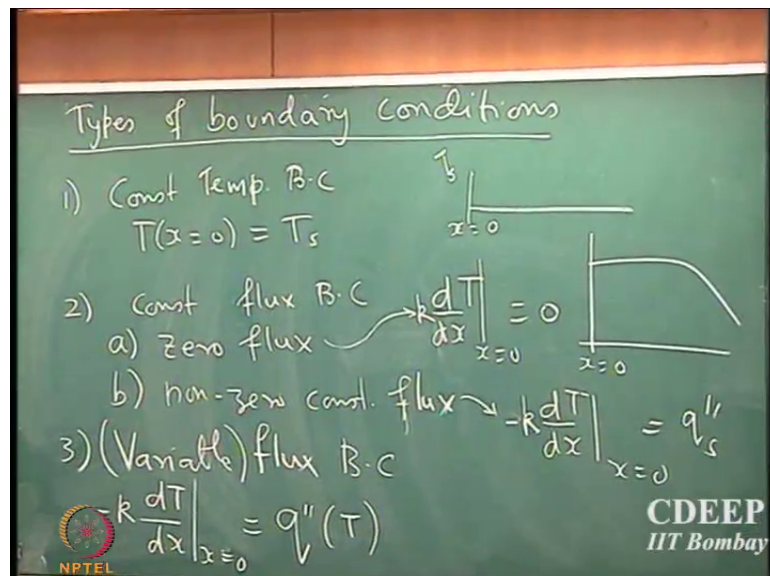 Types of boundary conditions
1) Const Temp. B.C
T(x=0) = Ts
Ts
x=0
2) Const flux B.C
a) zero flux → -k dT/dx|x=0 = 0
x=0
b) non-zero const. flux → -k dT/dx|x=0 = q″s
3) (Variable) flux B.C
-k dT/dx|x=0 = q″(T)
NPTEL
CDEEP
IIT Bombay